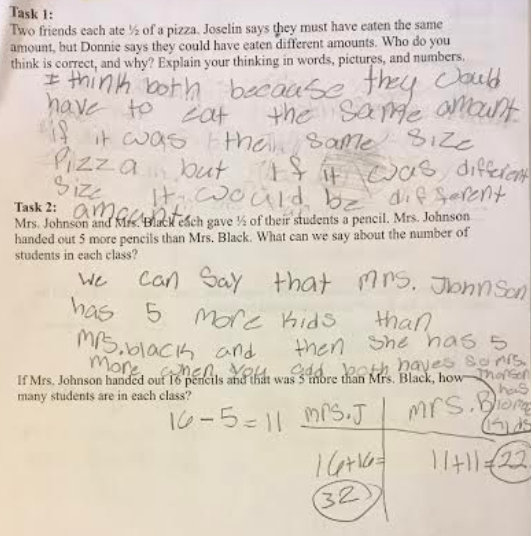 Task 1:
Two friends each ate ½ of a pizza. Joselin says they must have eaten the same
amount, but Donnie says they could have eaten different amounts. Who do you
think is correct, and why? Explain your thinking in words, pictures, and numbers.
I think both because they would
have to eat the same amount
if it was the same size
Pizza but if it was different
Size It would be different
amount
Task 2:
Mrs. Johnson and Mrs. Black each gave ½ of their students a pencil. Mrs. Johnson
handed out 5 more pencils than Mrs. Black. What can we say about the number of
students in each class?
We can Say that Mrs. Jbonnson
has 5 more kids than
Mrs.black and then she has 5
more when you add both haves so Mrs.
has
kids
If Mrs. Johnson handed out 16 pencils and that was 5 more than Mrs. Black, how
many students are in each class?
16-5=11 Mrs.J Mrs.B
16+16= 11+11=22
32